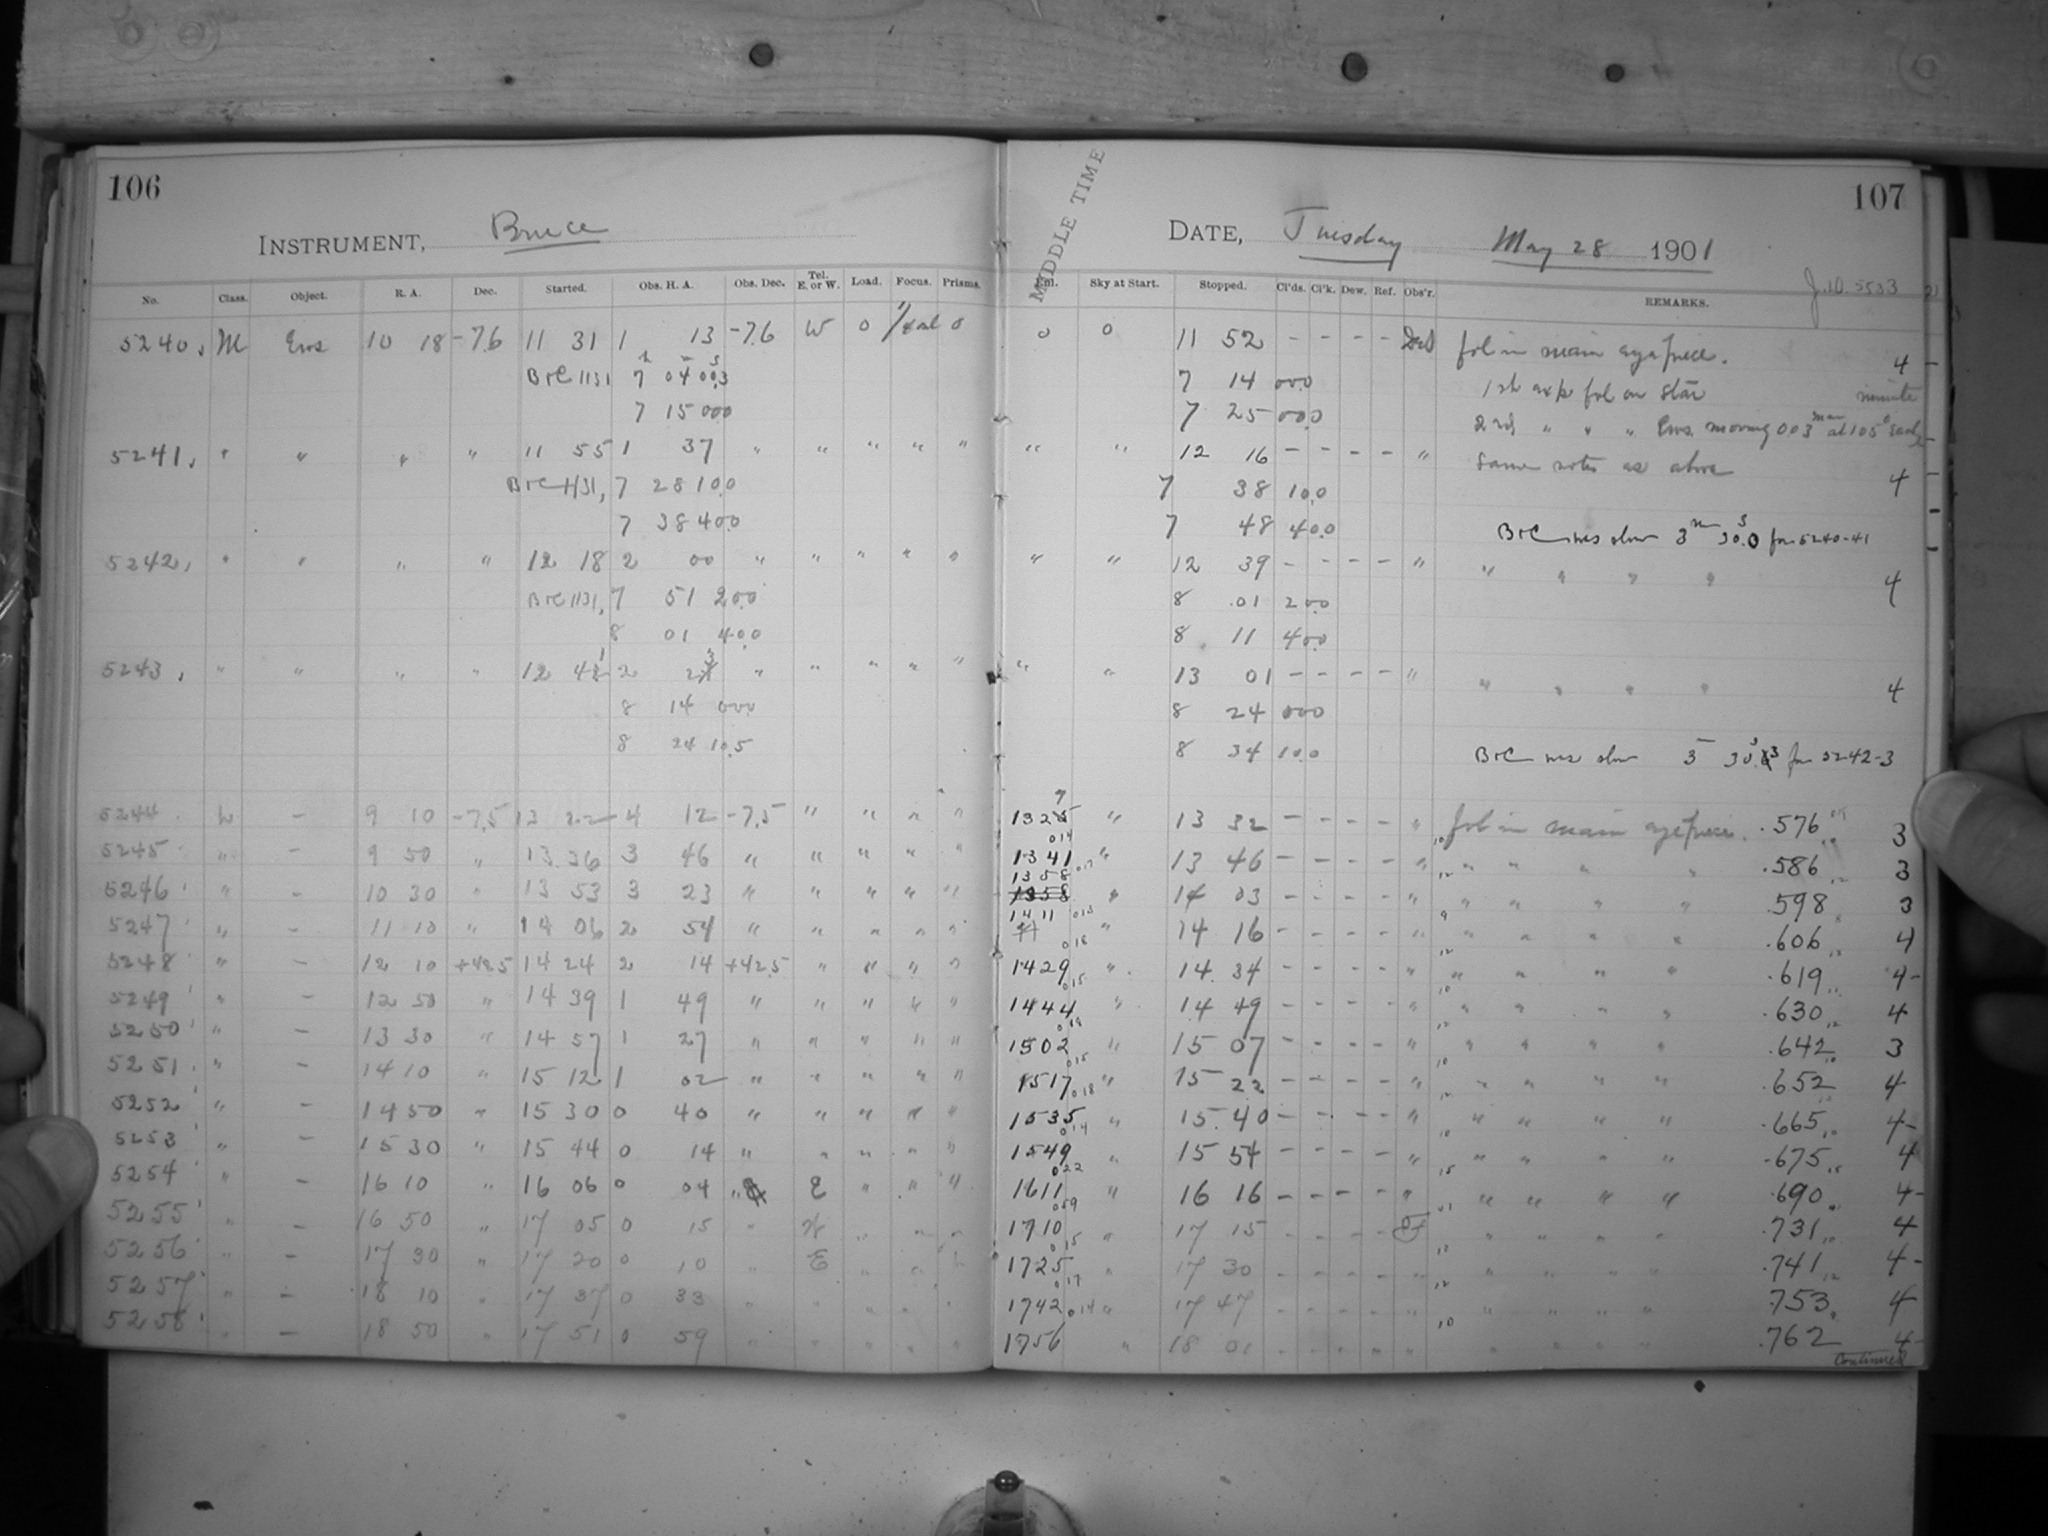 106
INSTRUMENT, Bruce
No. Class. Object. R. A. Dec. Started. Obs. H. A. Obs. Dec. Tel. E. or W. Load. Focus. Prisms.
5240, M Eros 10 18 -7.6 11 31 1 13 -7.6 W 0 0
B+C 1131 7 04 00.3
7 15 00.0
5241, " " " " 11 55 1 37 " " " " "
B+C 1131, 7 28 10.0
7 38 40.0
5242, " " " " 12 18 2 00 " " " " "
B+C 1131, 7 51 20.0
8 01 40.0
5243, " " " " 12 41 2 23 " " " " "
8 14 00.0
8 24 10.5
5244 — 9 10 -7.5 13 22 4 12 -7.5 " " " "
5245 " — 9 50 " 13 36 3 46 " " " " "
5246 " — 10 30 " 13 53 3 23 " " " " "
5247 " — 11 10 " 14 06 2 54 " " " " "
5248 " — 12 10 +42.5 14 24 2 14 +42.5 " " " "
5249 " — 12 50 " 14 39 1 49 " " " " "
5250 " — 13 30 " 14 57 1 27 " " " " "
5251 " — 14 10 " 15 12 1 02 " " " " "
5252 " — 14 50 " 15 30 0 40 " " " " "
5253 " — 15 30 " 15 44 0 14 " " " " "
5254 " — 16 10 " 16 06 0 04 " E " " "
5255 " — 16 50 " 17 05 0 15 " " " "
5256 " — 17 30 " 17 20 0 10 " E " " "
5257 " — 18 10 " 17 37 0 33 " " " " "
5258 " — 18 50 " 17 51 0 59 " " " " "
107
MIDDLE TIME
DATE, Tuesday May 28 1901
J.D. 5533
Sky at Start. Stopped. Cl'ds. Cl'k. Dew. Ref. Obs'r. REMARKS.
0 0 11 52 - - - - fol in main eyepiece. 4
7 14 00.0 1st exp fol on star
7 25 00.0 2nd " " " Eros moving 0.03 at 105° each minute
" " 12 16 - - - - " Same notes as above 4
7 38 10.0
7 48 40.0 B+C was slow 3m 30.0s for 5240-41
" " 12 39 - - - - " " " " " 4
8 01 20.0
8 11 40.0
" " 13 01 - - - - " " " " " 4
8 24 00.0
8 34 10.0 B+C was slow 3 30.3 for 5242-3
1327 " 13 32 - - - - " fol in main eyepiece. .576 3
014
1341 " 13 46 - - - - " " " " " .586 3
017
1358 " 14 03 - - - - " " " " " .598 3
013
1411 " 14 16 - - - - " " " " " .606 4
018
1429 " 14 34 - - - - " " " " " .619 4-
015
1444 " 14 49 - - - - " " " " " .630 4
018
1502 " 15 07 - - - - " " " " " .642 3
015
1517 " 15 22 - - - - " " " " " .652 4
018
1535 " 15 40 - - - - " " " " " .665 4-
014
1549 " 15 54 - - - - " " " " " .675 4
022
1611 " 16 16 - - - - " " " " " .690 4-
059
1710 " 17 15 - - - - " " " " .731 4
015
1725 " 17 30 - - - - " " " " " .741 4-
017
1742 " 17 47 - - - - " " " " " 753 4
014
1756 " 18 01 - - - - " " " " " .762 4-
Continued